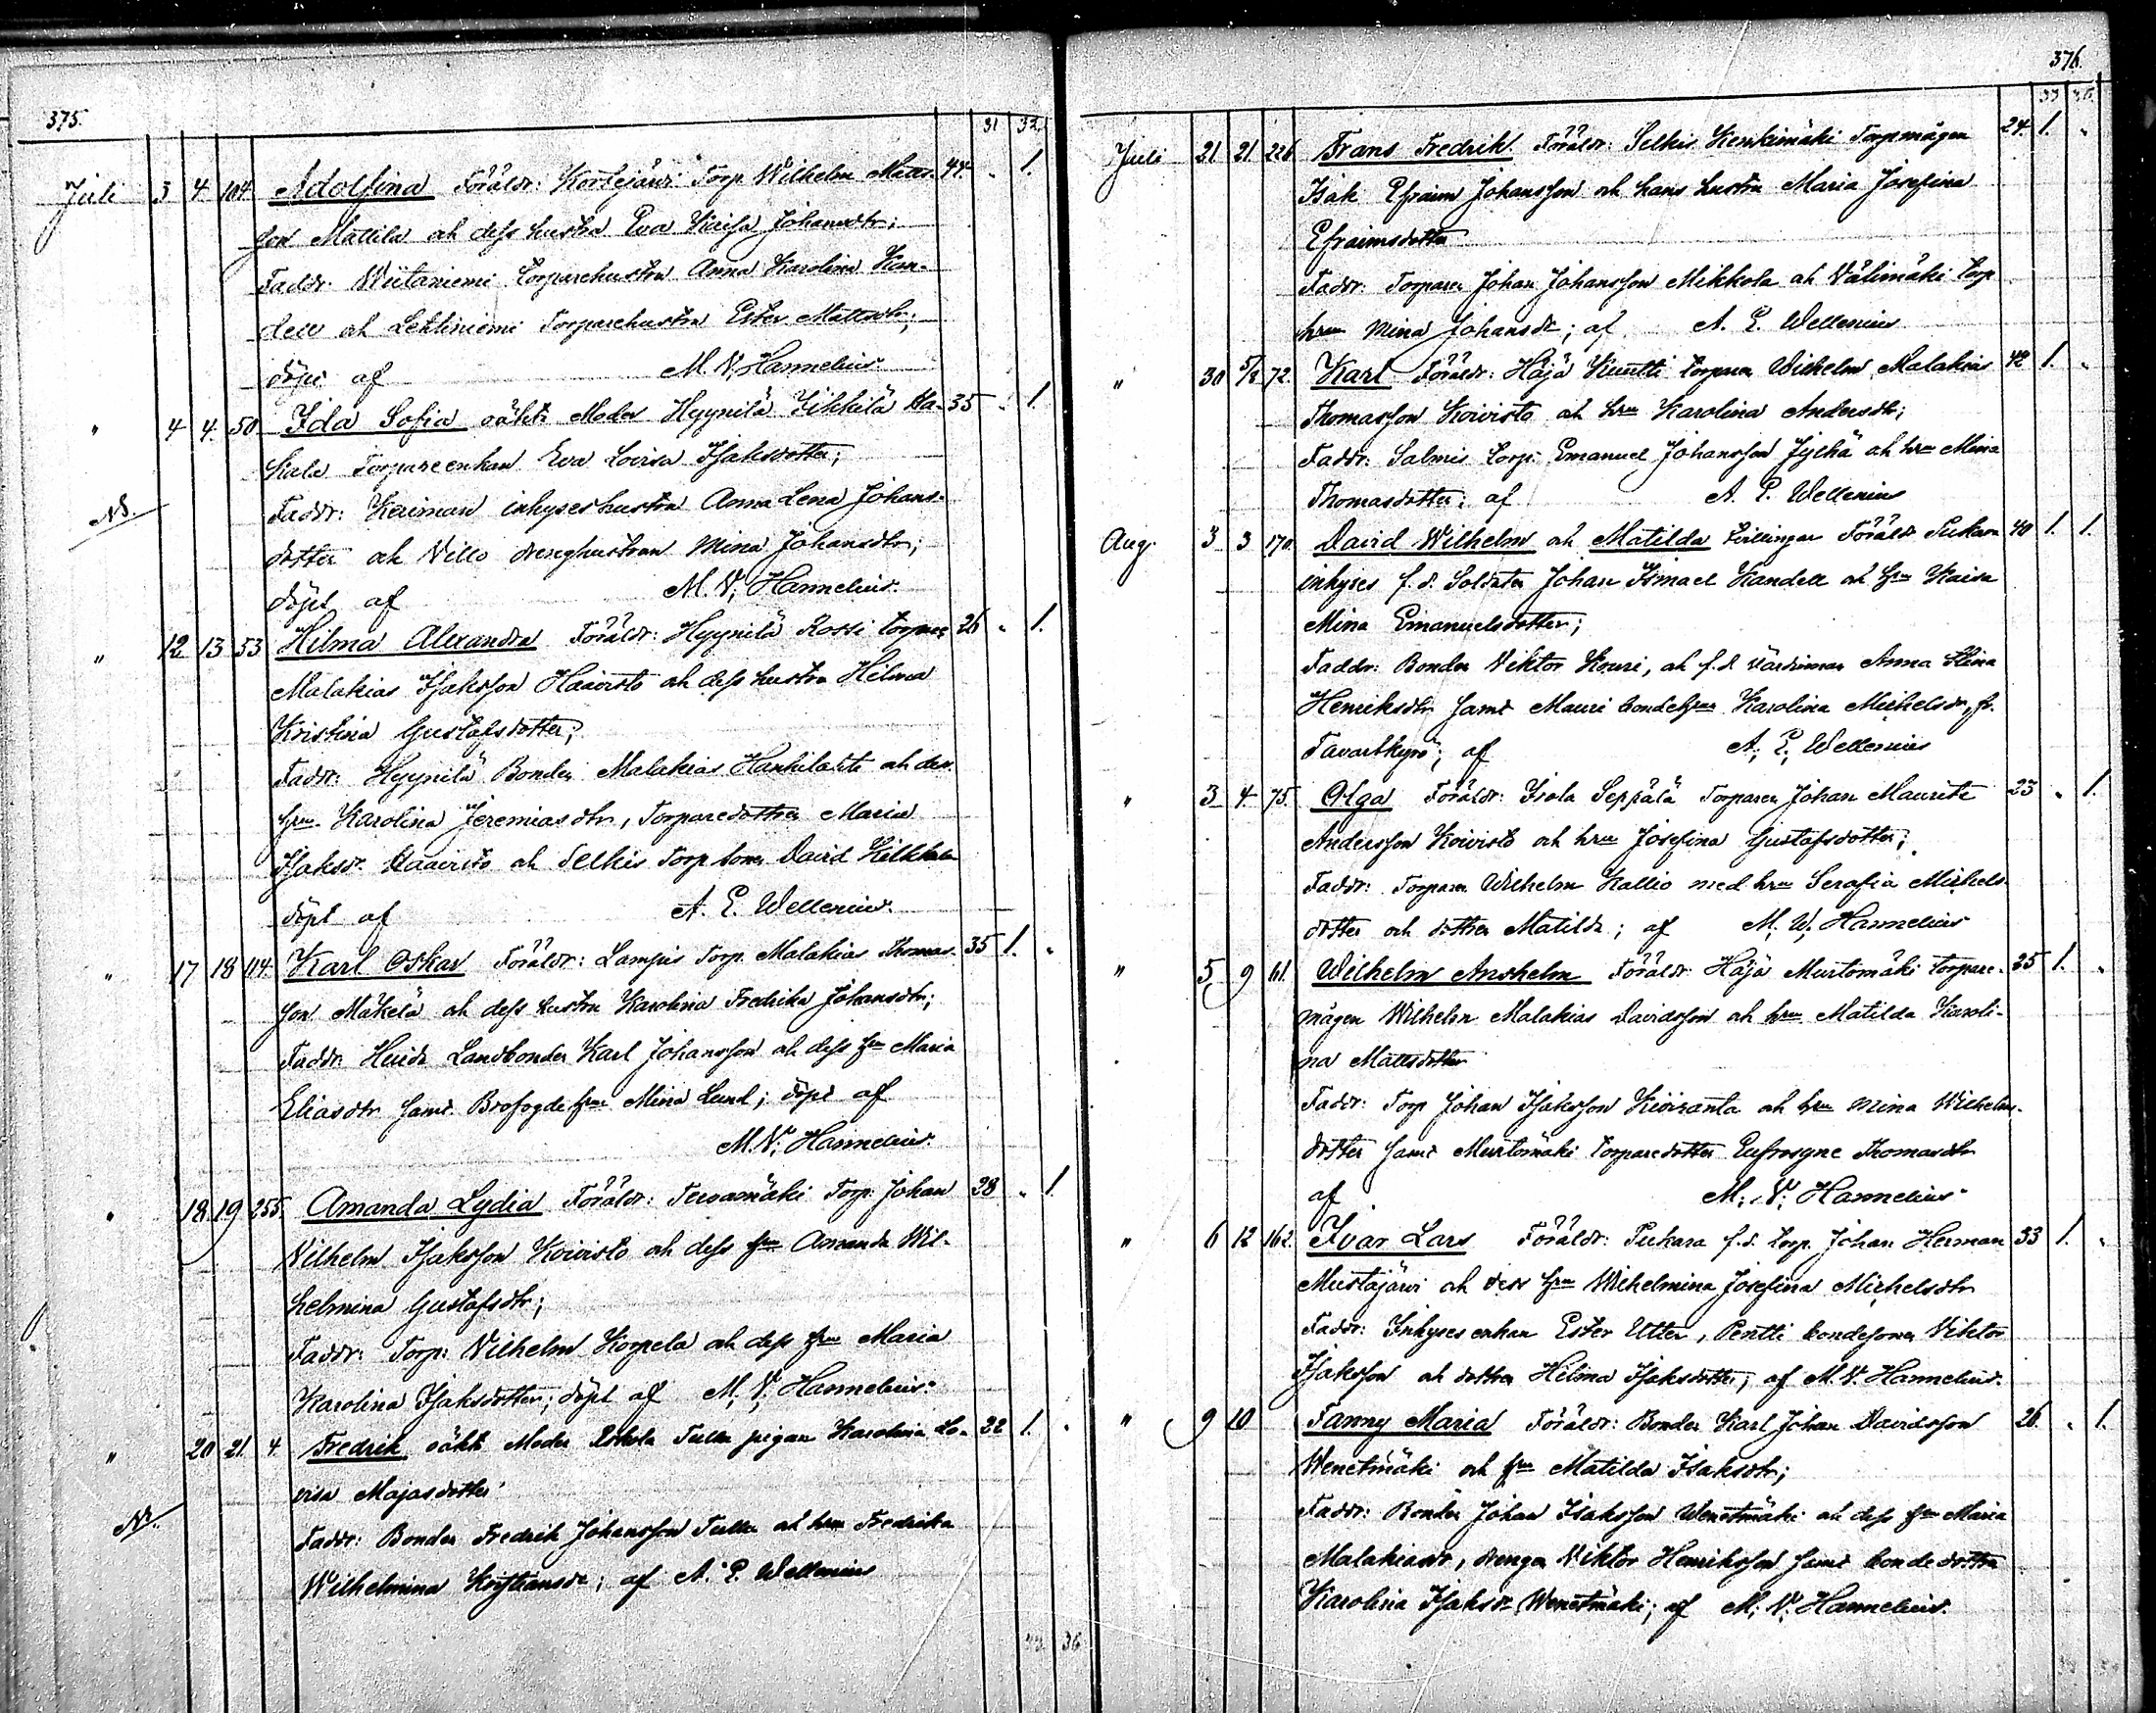 375.
31 32.
Juli 3 4 104. Adolfina Föräldr: Kortejärvi Torp. Wilhelm Matts- 44 " 1.
son Mattila och dess hustru Eva Kaisa Johansdtr;
Faddr. Wiitaniemi torparehustrun Anna Karolina Kan-
dell och Lehtiniemi Torparehustrun Ester Mattsdtr;
döpt af M. V. Hannelius.
" 4 4. 50 Ida Sofia oäkta Moder Hyynilä Ha- 35 " 1.
kala Torpareenkan Eva Lovisa Isaksdotter;
NB. Faddr: inhyseshustrun Anna Lena Johans-
dotter och Villo drenghustrun Mina Johansdtr;
döpt af M. V. Hannelius.
" 12 13 53 Hilma Alexandra Föräldr: Hyynilä Rossi torparen 26 " 1.
Malakias Isaksson Haavisto och dess hustru Hilma
Kristina Gustafsdotter;
Faddr: Hyynilä Bonden Malakias Hankilahti och dess
hru Karolina Jeremiasdtr, Torparedottren Maria
Isaksdr. Haavisto och Selkis Torp. sonen David
döpt af A. E. Wellenius.
" 17 18 114. Karl Oskar Föräldr: Lampis Torp. Malakias Thomas- 35 1. "
son Mäkelä och dess hustru Karolina Fredrika Johansdtr;
Faddr. Landbonden Karl Johansson och dess hru Maria
Eliasdtr samt Brofogdehru Mina Lund; döpt af
M. V. Hannelius.
" 18 19 255. Amanda Lydia Föräldr: Tervamäki Torp. Johan 28 " 1.
Vilhelm Isaksson Koivisto och dess hru Amanda Wil-
helmina Gustafsdtr;
Faddr: Torp. Vilhelm Korpela och dess hru Maria
Karolina Isaksdotter; döpt af M. V. Hannelius.
" 20 21. 4. Fredrik oäkta Moder Tulla pigan Karolina Lo- 22 1. "
visa Majasdotter
Faddr: Bonden Fredrik Johansson Tulla och hru Fredrika
Wilhelmina Kristiansdr; af A. E. Wellenius
36
376.
33
Juli 21 21 226 Frans Fredrik Föräldr: Selkis Kenkimäki Torpmågen 24. 1. "
Isak Efraim Johansson och hans hustru Maria Josefina
Efraimsdotter
Faddr: Torparen Johan Johansson Mikkola och Välimäki torp
hrun Mina Johansdr; af A. E. Wellenius
" 30 5/8 72. Karl Föräldr: Häjä Kuutti torparen Wilhelm Malakias 42 1. "
Thomasson Koivisto och hru Karolina Andersdtr;
Faddr: Salmis torp. Emanuel Johansson Jylhä och hru Mina
Thomasdotter; af A. E. Wellenius
Aug. 3 3 170. David Wilhelm och Matilda tvillingar Föräldr Pukara 40 1. 1.
inhyses f. d. Soldaten Johan Ismael Kandell och hru Kaisa
Mina Emanuelsdotter;
Faddr: Bonden Viktor Kouri, och f. d. värdinnan Anna Stina
Henriksdtr samt Mauri bondehrun Karolina Michelsdr, fr.
Tavastkyrö; af A. E. Wellenius
" 3 4 75. Olga Föräldr: Isola Seppälä Torparen Johan Maurits 23 " 1.
Andersson Koivisto och hru Josefina Gustafsdotter;
Faddr: Torparen Wilhelm Kallio med hru Serafia Michels-
dotter och dottren Matilda; af M. W. Hannelius
" 5 9 61. Wilhelm Anshelm Föräldr: Häjä Murtomäki torpare- 25 1. "
mågen Wilhelm Malakias Davidsson och hru Matilda Karoli-
na Mattsdotter
Faddr: Torp Johan Isaksson Kiviranta och hru Mina Wilhelms-
dotter samt Murtomäki torparedotter Eufrosyne Thomasdtr
af M. V. Hannelius
" 6 12 162. Ivar Lars Föräldr: Pukara f. d. torp. Johan Herman 33 1. "
Mustajärvi och dess hru Wilhelmina Josefina Michelsdtr
Faddr: Inhysesenkan Ester Utter, Pentti bondesonen Viktor
Isaksson och dottren Hilma Isaksdotter; af M. V. Hannelius.
" 9 10 Fanny Maria Föräldr: Bonden Karl Johan Davidsson 26. " 1.
Wenetmäki och hru Matilda Isaksdtr;
Faddr: Bonden Johan Isaksson Wenetmäki och dess hru Maria
Malakiasdr, drengen Viktor Henriksson samt bondedottren
Karolina Isaksdr Wenetmäki; af M. V. Hannelius.